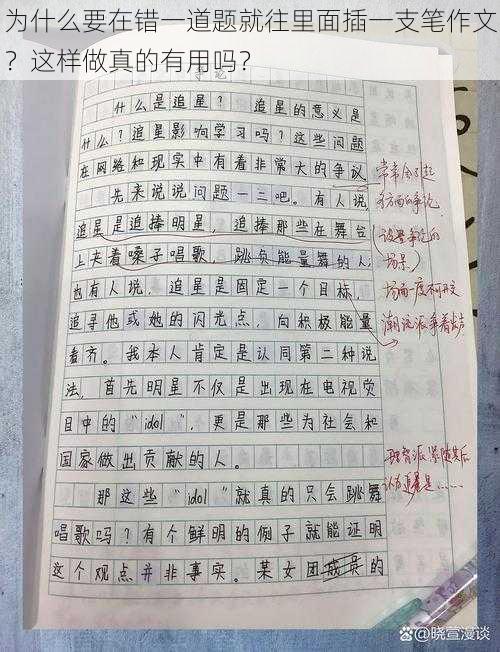 为什么要在错一道题就往里面插一支笔作文
？这样做真的有用吗？
什么是追星？追星的意义是
什么？追星影响学习吗？这些问题
在网络和现实中有着非常大的争议
先来说说问题一二吧。有人说，
追星是追捧明星，追捧那些在舞台
上夹着嗓子唱歌、跳负能量舞的人；
也有人说，追星是固定一个目标，
追寻他或她的闪光点，向积极能量
看齐。我本人肯定是认同第二种说
法，首先明星不仅是出现在电视荧
目中的“idol”，更是那些为社会和
国家做出贡献的人。
那这些“idol”就真的只会跳舞
唱歌吗？有个鲜明的例子就能证明
这个观点并非事实。某女团成员的
常常会引起
多方面的争论
（设置争论的
场景）
场面一度不可开交
潮流派争着发声
理智派紧随其后
认为更是……
@晓萱漫谈